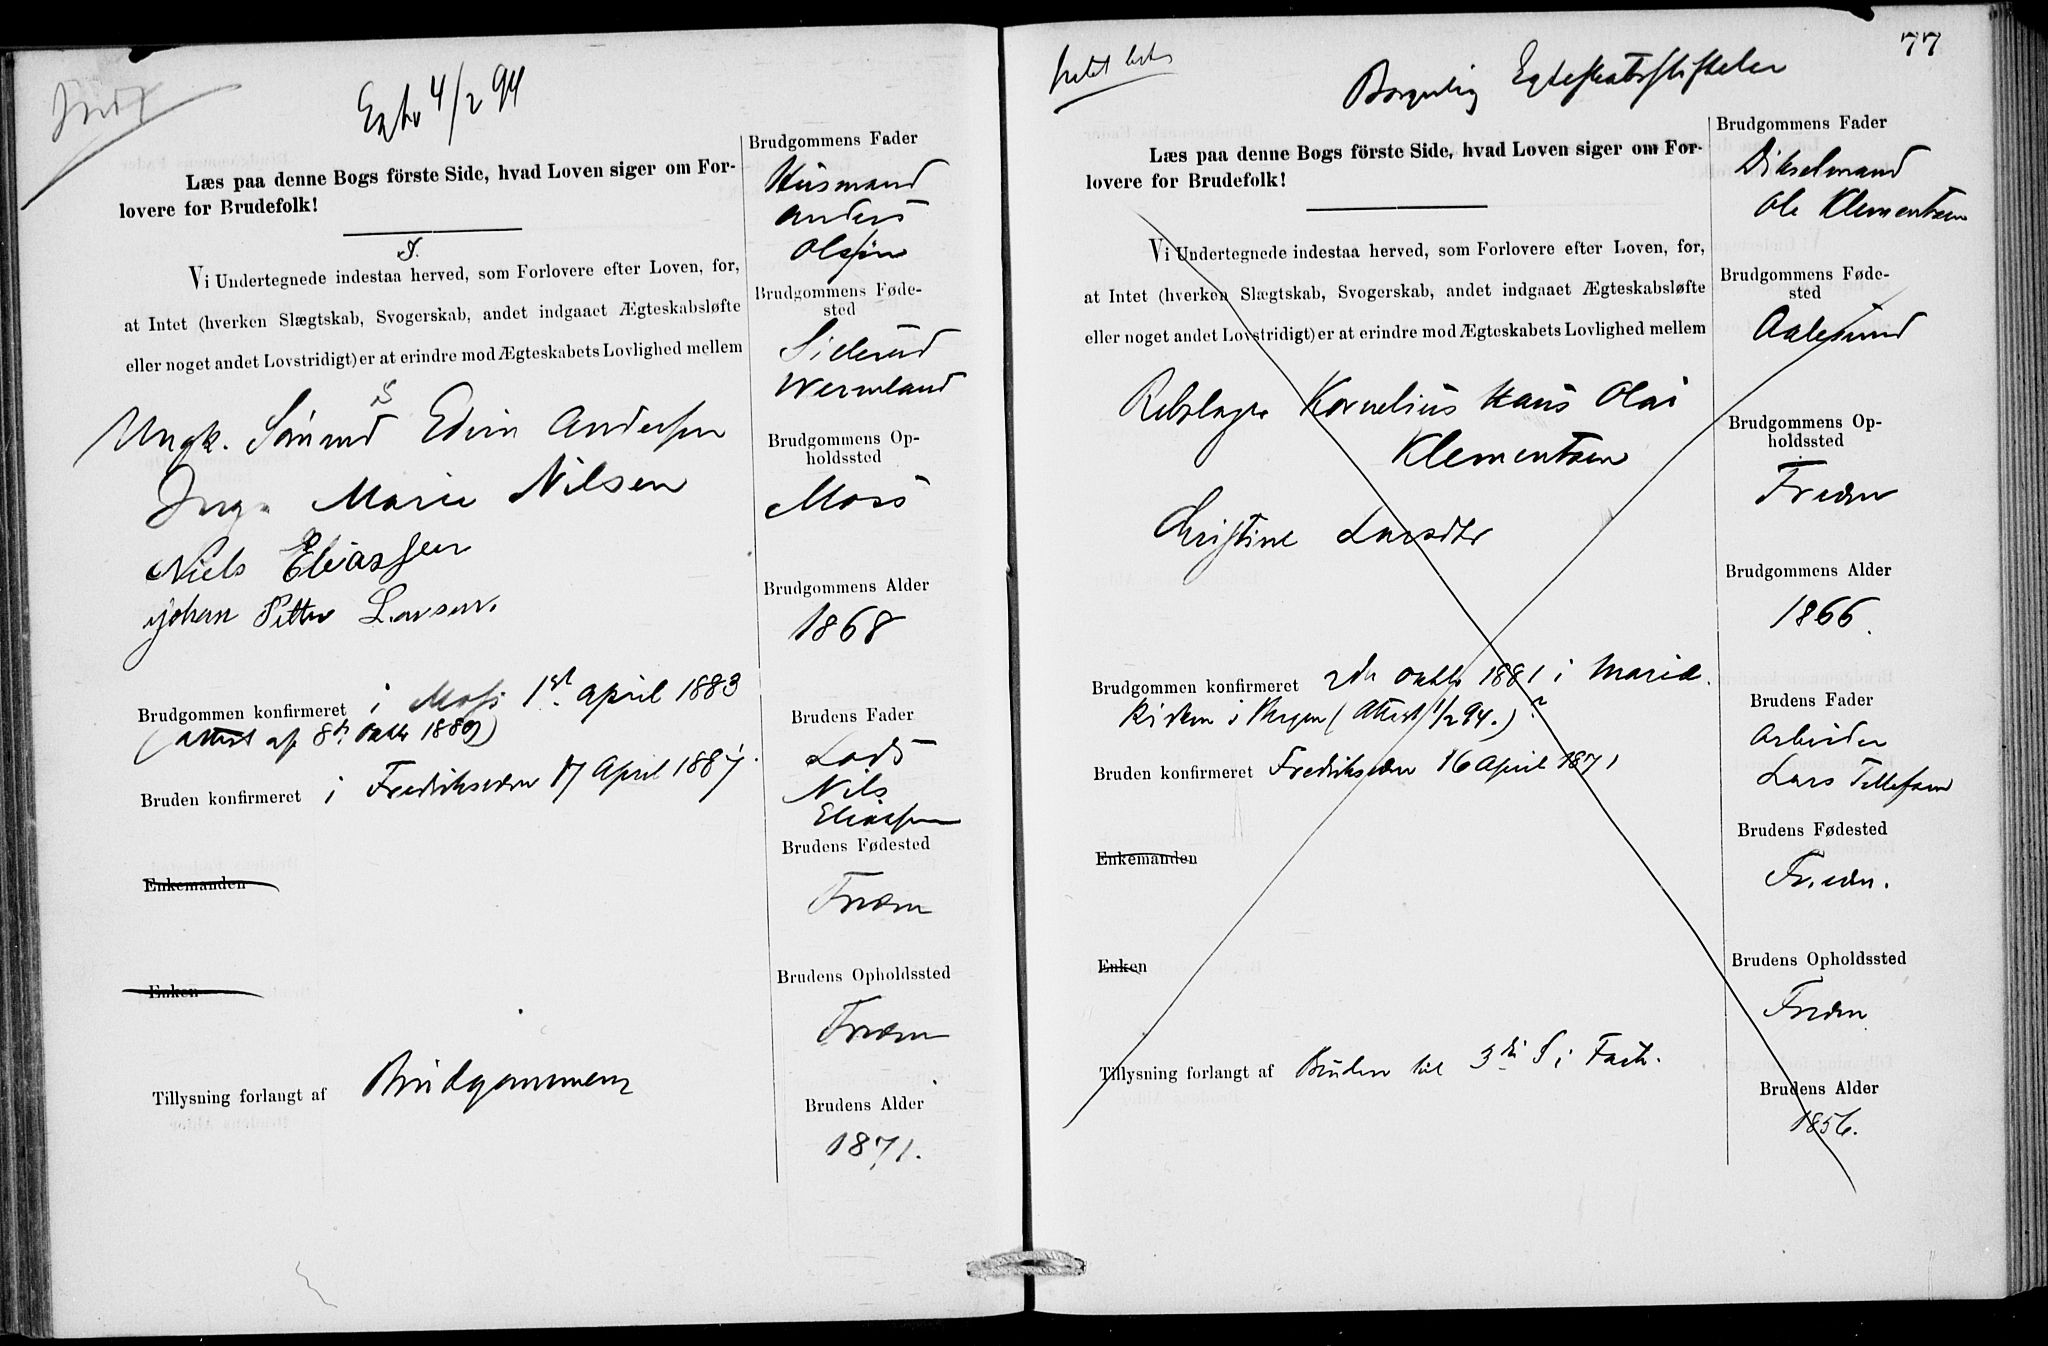 Indf
4/2 94
Læs paa denne Bogs förste Side, hvad Loven siger om For-
lovere for Brudefolk!
Vi Undertegnede indestaa herved, som Forlovere efter Loven, for,
at Intet (hverken Slægtskab, Svogerskab, andet indgaaet Ægteskabsløfte
eller noget andet Lovstridigt) er at erindre mod Ægteskabets Lovlighed mellem
Ungk. Edvin Andersen
Inga Marie Nilsen
Niels Eliassen
Johan Petter Larsen.
Brudgommen konfirmeret i Moss 1ste april 1883
(attest af 8de Oktbr 1889)
Bruden konfirmeret i Fredriksværn 17 April 1887.
Enkemanden
Enken
Tillysning forlangt af Brudgommen
Brudgommens Fader
Husmand
Anders
Olsen
Brudgommens Føde-
sted
Silerud
Wermland
Brudgommens Op-
holdssted
Moss
Brudgommens Alder
1868
Brudens Fader
Lods
Nils
Eliassen
Brudens Fødested
Frværn
Brudens Opholdssted
Frværn
Brudens Alder
1871.
77
Borgerlig Egteskabsstiftelse
Læs paa denne Bogs förste Side, hvad Loven siger om For-
lovere for Brudefolk!
Vi Undertegnede indestaa herved, som Forlovere efter Loven, for,
at Intet (hverken Slægtskab, Svogerskab, andet indgaaet Ægteskabsløfte
eller noget andet Lovstridigt) er at erindre mod Ægteskabets Lovlighed mellem
Rebslager Kornelius Hans Olai
Klementsen
Christine Larsdtr
Brudgommen konfirmeret 2den Oktbr 1881 i Marie
Kirken i Bergen (Attest 1/2 94.)
Bruden konfirmeret Fredriksværn 16 April 1871
Enkemanden
Enken
Tillysning forlangt af Bruden til 3die S i Faste.
Brudgommens Fader
Dikselmand
Ole Klementsen
Brudgommens Føde-
sted
Aalesund
Brudgommens Op-
holdssted
Frværn
Brudgommens Alder
1866.
Brudens Fader
Arbeider
Lars Tellefsen
Brudens Fødested
Frværn.
Brudens Opholdssted
Frværn
Brudens Alder
1856.